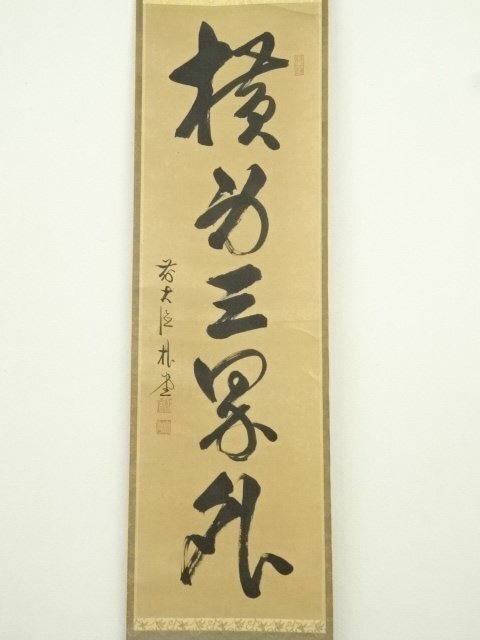 横身三界外
前大徳